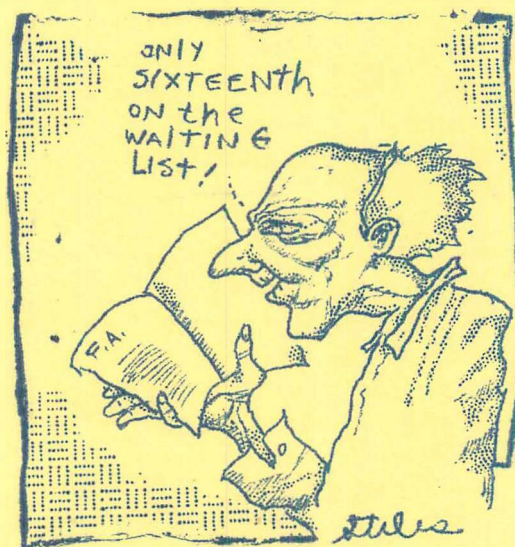 ONLY
SIXTEENth
ON the
WAITING
LIST!
F.A.
Stiles